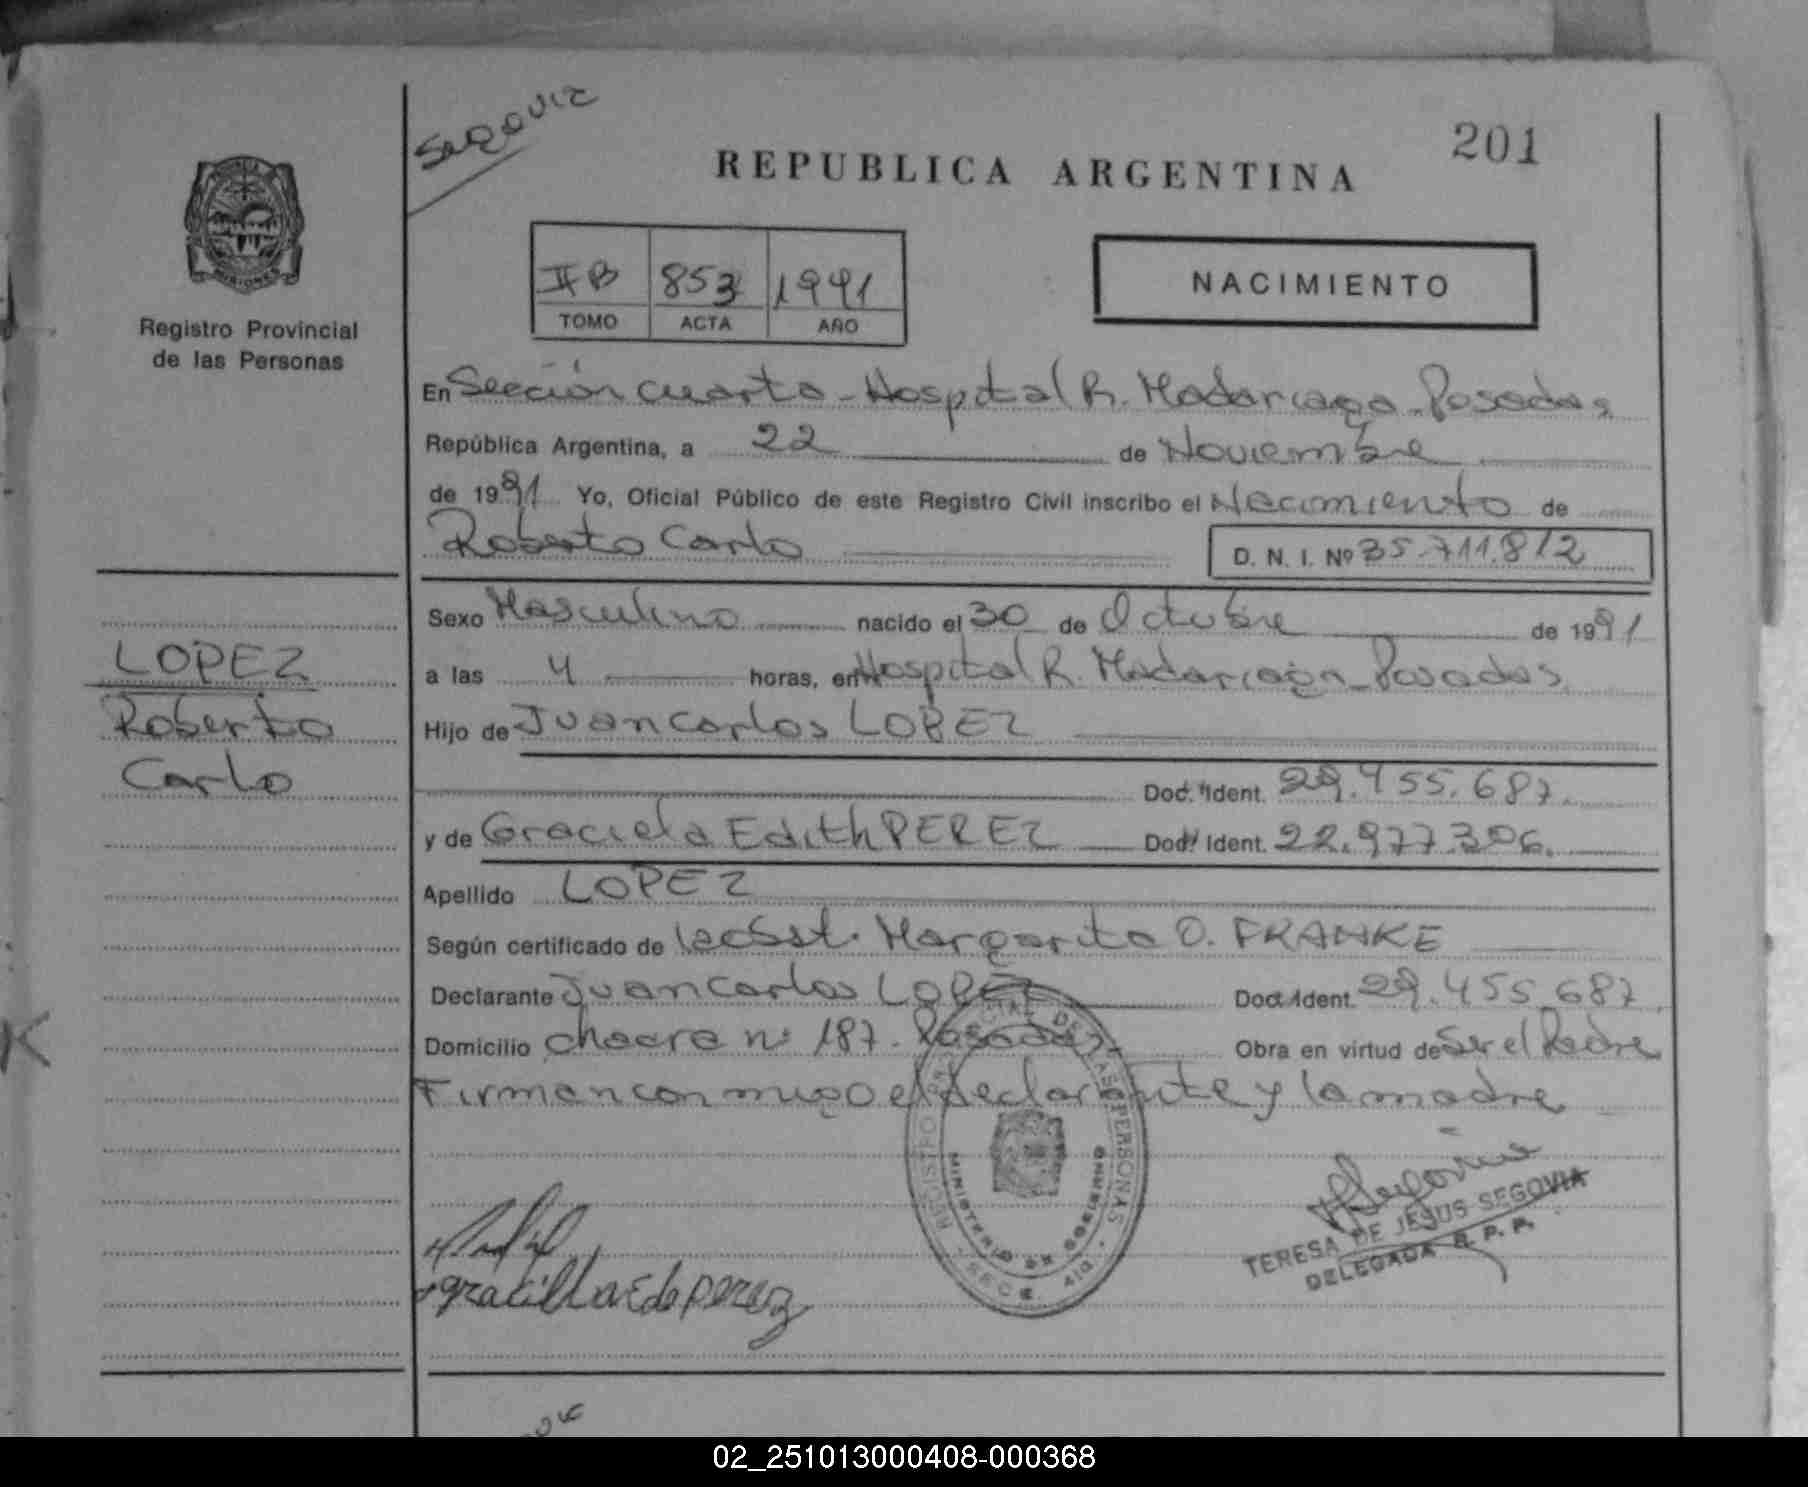 Segovia
201
REPUBLICA ARGENTINA
PROVINCIA
MISIONES
Registro Provincial
de las Personas
II B 853 1991
TOMO ACTA AÑO
NACIMIENTO
En Sección cuarta - Hospital R. Madariaga - Posadas
República Argentina, a 22 de Noviembre
de 1991 Yo, Oficial Público de este Registro Civil inscribo el Nacimiento de
Roberto Carlo D. N. I. Nº 35.711.812
Sexo Masculino nacido el 30 de Octubre de 1991
a las 4 horas, en Hospital R. Madariaga - Posadas
Hijo de Juan Carlos LOPEZ
Doc. Ident. 29.455.687.
y de Graciela Edith PEREZ Doc. Ident. 22.977.306.
Apellido LOPEZ
Según certificado de la obst. Margarita O. FRANKE
Declarante Juan Carlos LOPEZ Doc. Ident. 29.455.687
Domicilio chacra nº 187. Posadas Obra en virtud de Ser el Padre
Firman conmigo el declarante y la madre
LOPEZ
Roberto
Carlo
K
REGISTRO PROVINCIAL DE LAS PERSONAS
MINISTERIO DE GOBIERNO
SECC. 4ta.
Segovia
TERESA DE JESUS SEGOVIA
DELEGADA R. P. P.
02_251013000408-000368